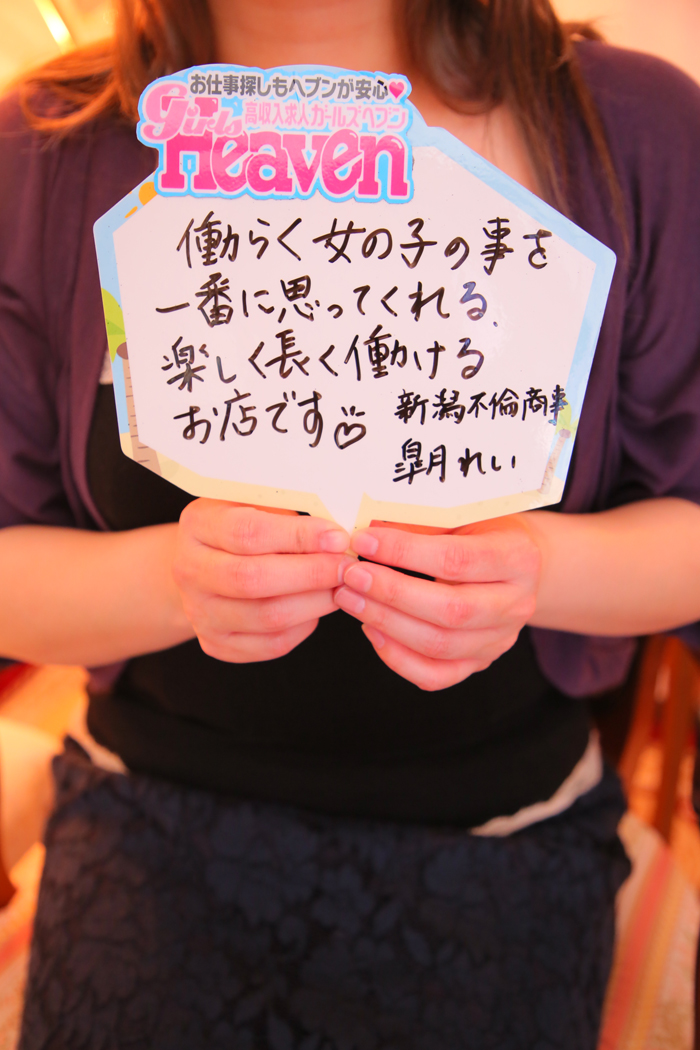 お仕事探しもヘブンが安心♥
girls 高収入求人ガールズヘブン
Heaven
働らく女の子の事を
一番に思ってくれる、
楽しく長く働ける
お店です♡
新潟不倫商事
皐月れい